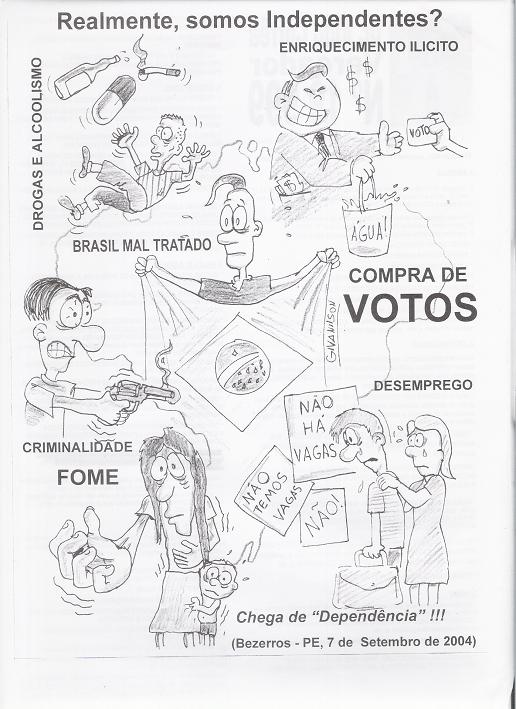 Realmente, somos Independentes?
ENRIQUECIMENTO ILICITO
DROGAS E ALCOOLISMO
$ $
$
$
VOTO
ÁGUA!
BRASIL MAL TRATADO
COMPRA DE
VOTOS
GIVANILSON
DESEMPREGO
CRIMINALIDADE
FOME
NÃO
HÁ
VAGAS
NÃO
TEMOS
VAGAS
NÃO!
Chega de “Dependência” !!!
(Bezerros - PE, 7 de Setembro de 2004)